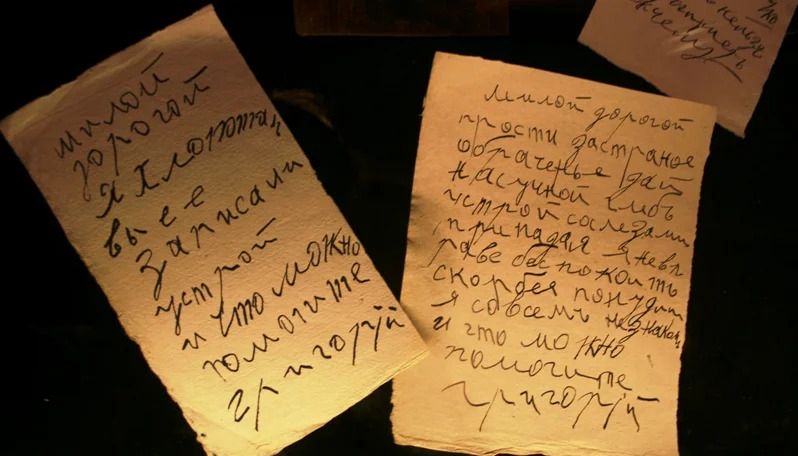 милой
дорогой
я хлопочю
вы ее
записали
устрой
и что можно
помогите
григорiй
милой дорогой
прости за страное
обраченье дай
насучной хлебъ
устрой со слезами
припадая я не вп
раве беспокоить
скорбея понудили
я совсемъ незнаком
и что можно
помогите
григорiй
нельзя